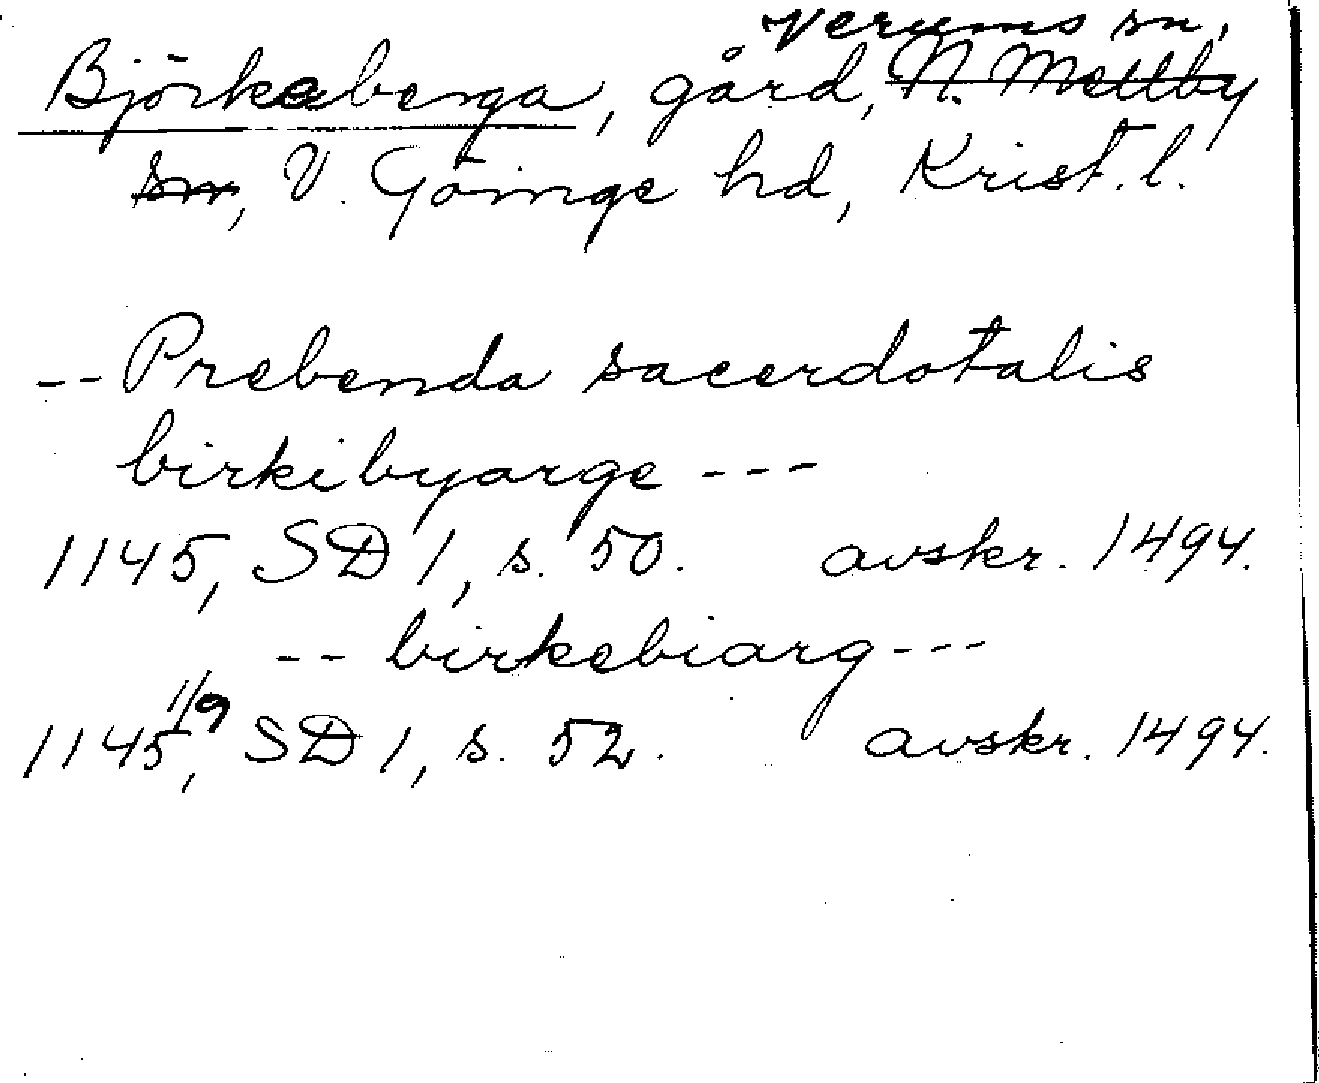 Verums sn,
Björkeberga, gård, N. Mellby
sn, V. Göinge hd, Krist. l.
-- Prebenda sacerdotalis
birkibyarge ---
1145, SD 1, s. 50. avskr. 1494.
-- birkebiarg ---
1145 1/9, SD 1, s. 52. avskr. 1494.